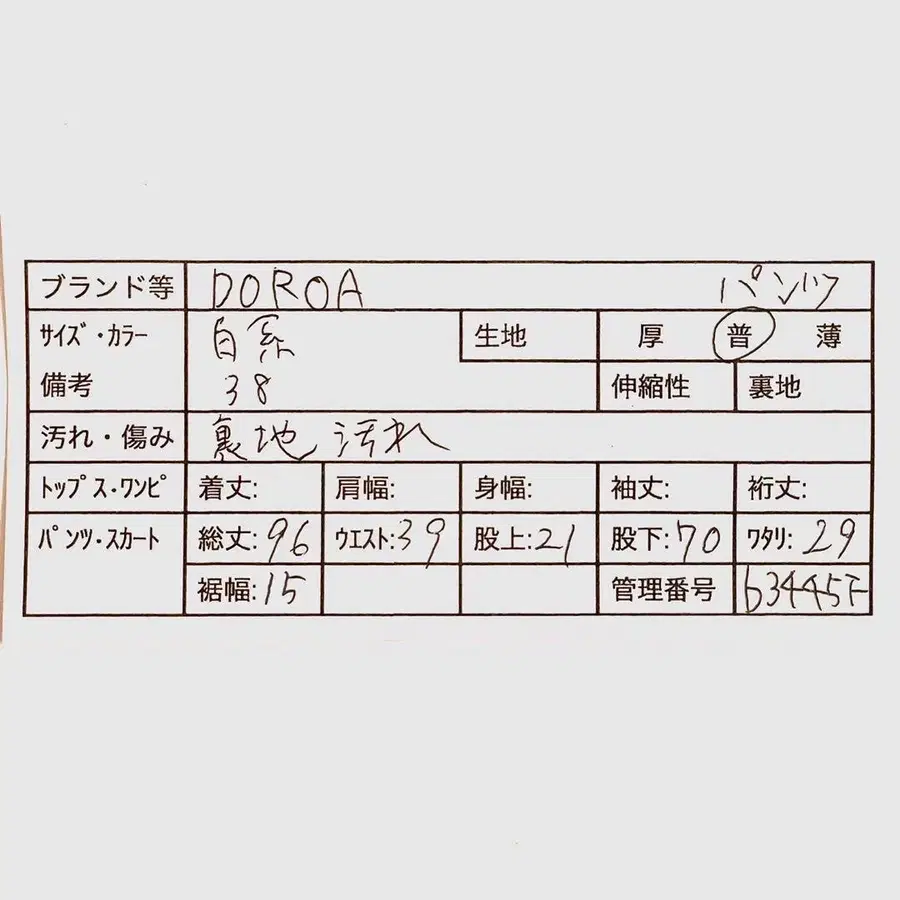 ブランド等 DOROA パンツ
サイズ・カラー 白系 生地 厚 普 薄
備考 38 伸縮性 裏地
汚れ・傷み 裏地 汚れ
トップス・ワンピ 着丈: 肩幅: 身幅: 袖丈: 裄丈:
パンツ・スカート 総丈:96 ウエスト:39 股上:21 股下:70 ワタリ:29
裾幅:15 管理番号 b3445F